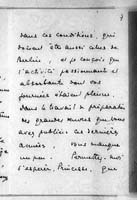 dans ces conditions, qui
doivent être aussi celles de
Berlin, et je conçois que
l'activité passionnante et
absorbante dont vos
journées étaient pleines
dans le travail de préparation
des grandes œuvres que vous
avez publiées ces dernières
années, vous manque
un peu. Permettez-moi
d'espérer, Princesse, que